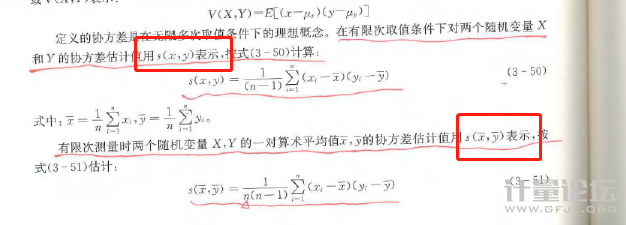 或V(X,Y)表示:
V(X,Y)=E[(x−μₓ)(y−μᵧ)]
定义的协方差是在无限多次取值条件下的理想概念。在有限次取值条件下对两个随机变量X
和Y的协方差估计值用s(x,y)表示,按式(3-50)计算:
s(x,y)=1/(n−1) ∑ⁿᵢ₌₁(xᵢ−x̄)(yᵢ−ȳ) (3-50)
式中:x̄=1/n ∑ⁿᵢ₌₁xᵢ,ȳ=1/n ∑ⁿᵢ₌₁yᵢ。
有限次测量时两个随机变量X,Y的一对算术平均值x̄,ȳ的协方差估计值用s(x̄,ȳ)表示,按
式(3-51)估计:
s(x̄,ȳ)=1/n(n−1) ∑ⁿᵢ₌₁(xᵢ−x̄)(yᵢ−ȳ) (3-51)
计量论坛
WWW.GFJL.ORG